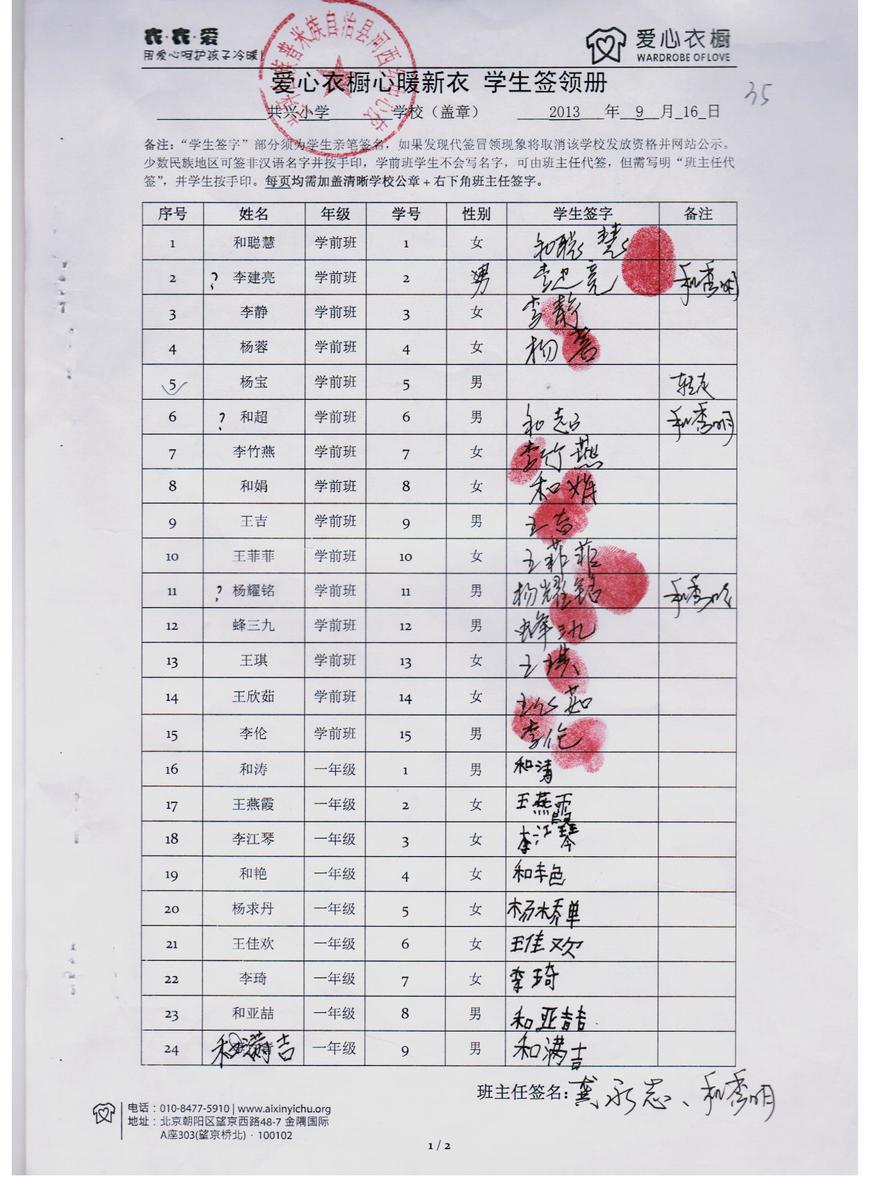 衣·衣·爱
用爱心呵护孩子冷暖!
爱心衣橱
WARDROBE OF LOVE
爱心衣橱心暖新衣 学生签领册
35
共兴小学 学校（盖章） 2013 年 9 月 16 日
备注：“学生签字”部分须为学生亲笔签名，如果发现代签冒领现象将取消该学校发放资格并网站公示。
少数民族地区可签非汉语名字并按手印，学前班学生不会写名字，可由班主任代签，但需写明“班主任代
签”，并学生按手印。每页均需加盖清晰学校公章＋右下角班主任签字。
序号 姓名 年级 学号 性别 学生签字 备注
1 和聪慧 学前班 1 女 和聪慧
2 ? 李建亮 学前班 2 男 李建亮 和秀明
3 李静 学前班 3 女 李静
4 杨蓉 学前班 4 女 杨蓉
5 杨宝 学前班 5 男
6 ? 和超 学前班 6 男 和超 和秀明
7 李竹燕 学前班 7 女 李竹燕
8 和娟 学前班 8 女 和娟
9 王吉 学前班 9 男 王吉
10 王菲菲 学前班 10 女 王菲菲
11 ? 杨耀铭 学前班 11 男 杨耀铭 和秀明
12 蜂三九 学前班 12 男 蜂三九
13 王琪 学前班 13 女 王琪
14 王欣茹 学前班 14 女 王欣茹
15 李伦 学前班 15 男 李伦
16 和涛 一年级 1 男 和涛
17 王燕霞 一年级 2 女 王燕霞
18 李江琴 一年级 3 女 李江琴
19 和艳 一年级 4 女 和艳
20 杨求丹 一年级 5 女
21 王佳欢 一年级 6 女 王佳欢
22 李琦 一年级 7 女 李琦
23 和亚喆 一年级 8 男 和亚喆
24 和满吉 一年级 9 男 和满吉
班主任签名：龚永志、和秀明
电话：010-8477-5910 | www.aixinyichu.org
地址：北京朝阳区望京西路48-7 金隅国际
A座303(望京桥北) · 100102
1 / 2